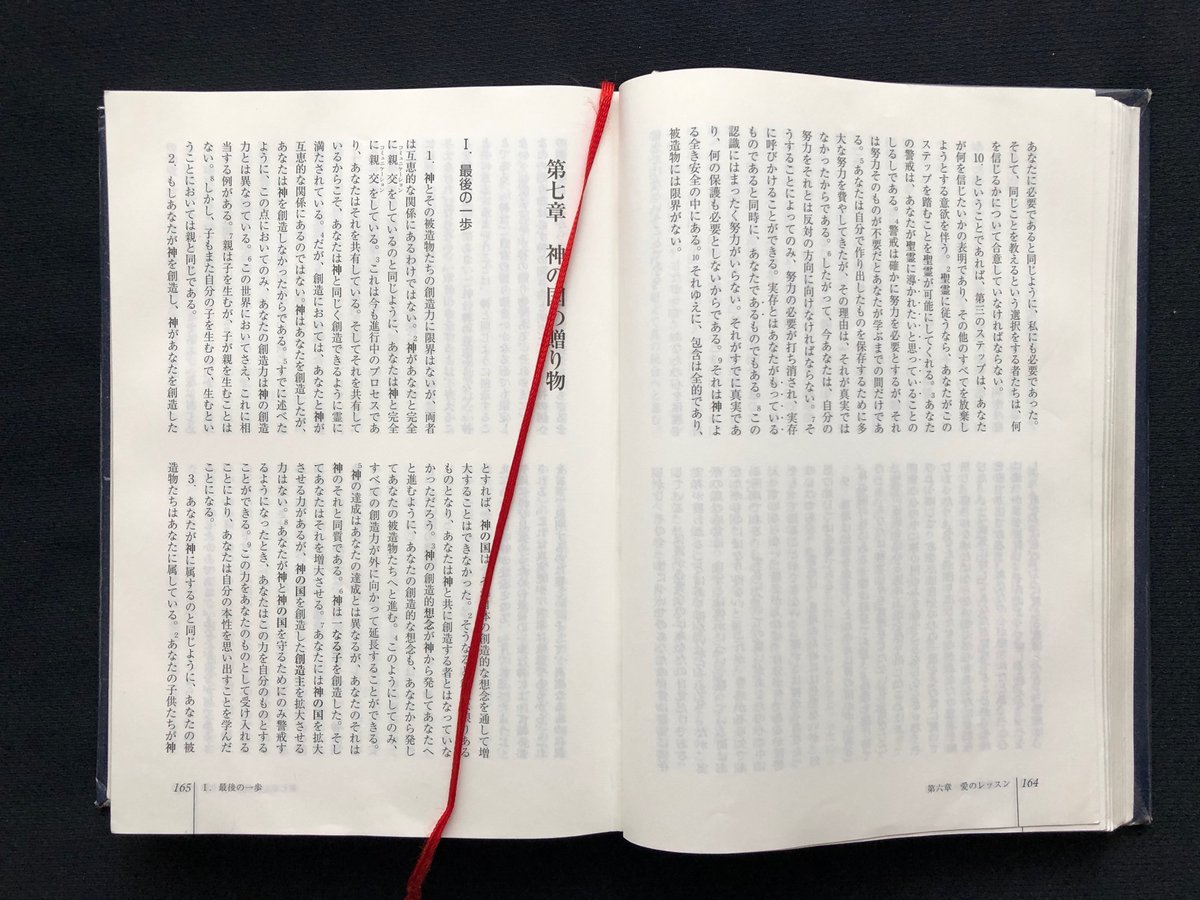 あなたに必要であると同じように、私にも必要であった。
そして、同じことを教えるという選択をする者たちは、何
を信じるかについて合意していなければならない。
10 ということであれば、第三のステップは、あなた
が何を信じたいかの表明であり、その他のすべてを放棄し
ようとする意欲を伴う。2聖霊に従うなら、あなたがこの
ステップを踏むことを聖霊が可能にしてくれる。3あなた
の警戒は、あなたが聖霊に導かれたいと思っていることの
しるしである。4警戒は確かに努力を必要とするが、それ
は努力そのものが不要だとあなたが学ぶまでの間だけであ
る。5あなたは自分で作り出したものを保存するために多
大な努力を費やしてきたが、その理由は、それが真実では
なかったからである。6したがって、今あなたは、自分の
努力をそれとは反対の方向に向けなければならない。7そ
うすることによってのみ、努力の必要が打ち消され、実存
に呼びかけることができる。実存とはあなたがもっている
ものであると同時に、あなたであるものでもある。8この
認識にはまったく努力がいらない。それがすでに真実であ
り、何の保護も必要としないからである。9それは神によ
る全き安全の中にある。10それゆえに、包含は全的であり、
被造物には限界がない。
第六章 愛のレッスン 164
第七章 神の国の贈り物
Ⅰ. 最後の一歩
1. 神とその被造物たちの創造力に限界はないが、両者
は互恵的な関係にあるわけではない。2神があなたと完全
に親交をしているのと同じように、あなたは神と完全
コミューニケーション
に親交をしている。3これは今も進行中のプロセスであ
コミューニケーション
り、あなたはそれを共有している。そしてそれを共有して
いるからこそ、あなたは神と同じく創造できるように霊に
満たされている。4だが、創造においては、あなたと神が
互恵的な関係にあるのではない。神はあなたを創造したが、
あなたは神を創造しなかったからである。5すでに述べた
ように、この点においてのみ、あなたの創造力は神の創造
力とは異なっている。6この世界においてさえ、これに相
当する例がある。7親は子を生むが、子が親を生むことは
ない。8しかし、子もまた自分の子を生むので、生むとい
うことにおいては親と同じである。
2. もしあなたが神を創造し、神があなたを創造した
とすれば、神の国は、の創造的な想念を通して増
大することはできなかった。2そうなる限りある
ものとなり、あなたは神と共に創造する者とはなっていな
かっただろう。3神の創造的想念が神から発してあなたへ
と進むように、あなたの創造的な想念も、あなたから発し
てあなたの被造物たちへと進む。4このようにしてのみ、
すべての創造力が外に向かって延長することができる。
5神の達成はあなたの達成とは異なるが、あなたのそれは
神のそれと同質である。6神は一なる子を創造した。そし
てあなたはそれを増大させる。7あなたには神の国を拡大
させる力があるが、神の国を創造した創造主を拡大させる
力はない。8あなたが神と神の国を守るためにのみ警戒す
るようになったとき、あなたはこの力を自分のものとする
ことができる。9この力をあなたのものとして受け入れる
ことにより、あなたは自分の本性を思い出すことを学んだ
ことになる。
3. あなたが神に属するのと同じように、あなたの被
造物たちはあなたに属している。2あなたの子供たちが神
165 Ⅰ. 最後の一歩